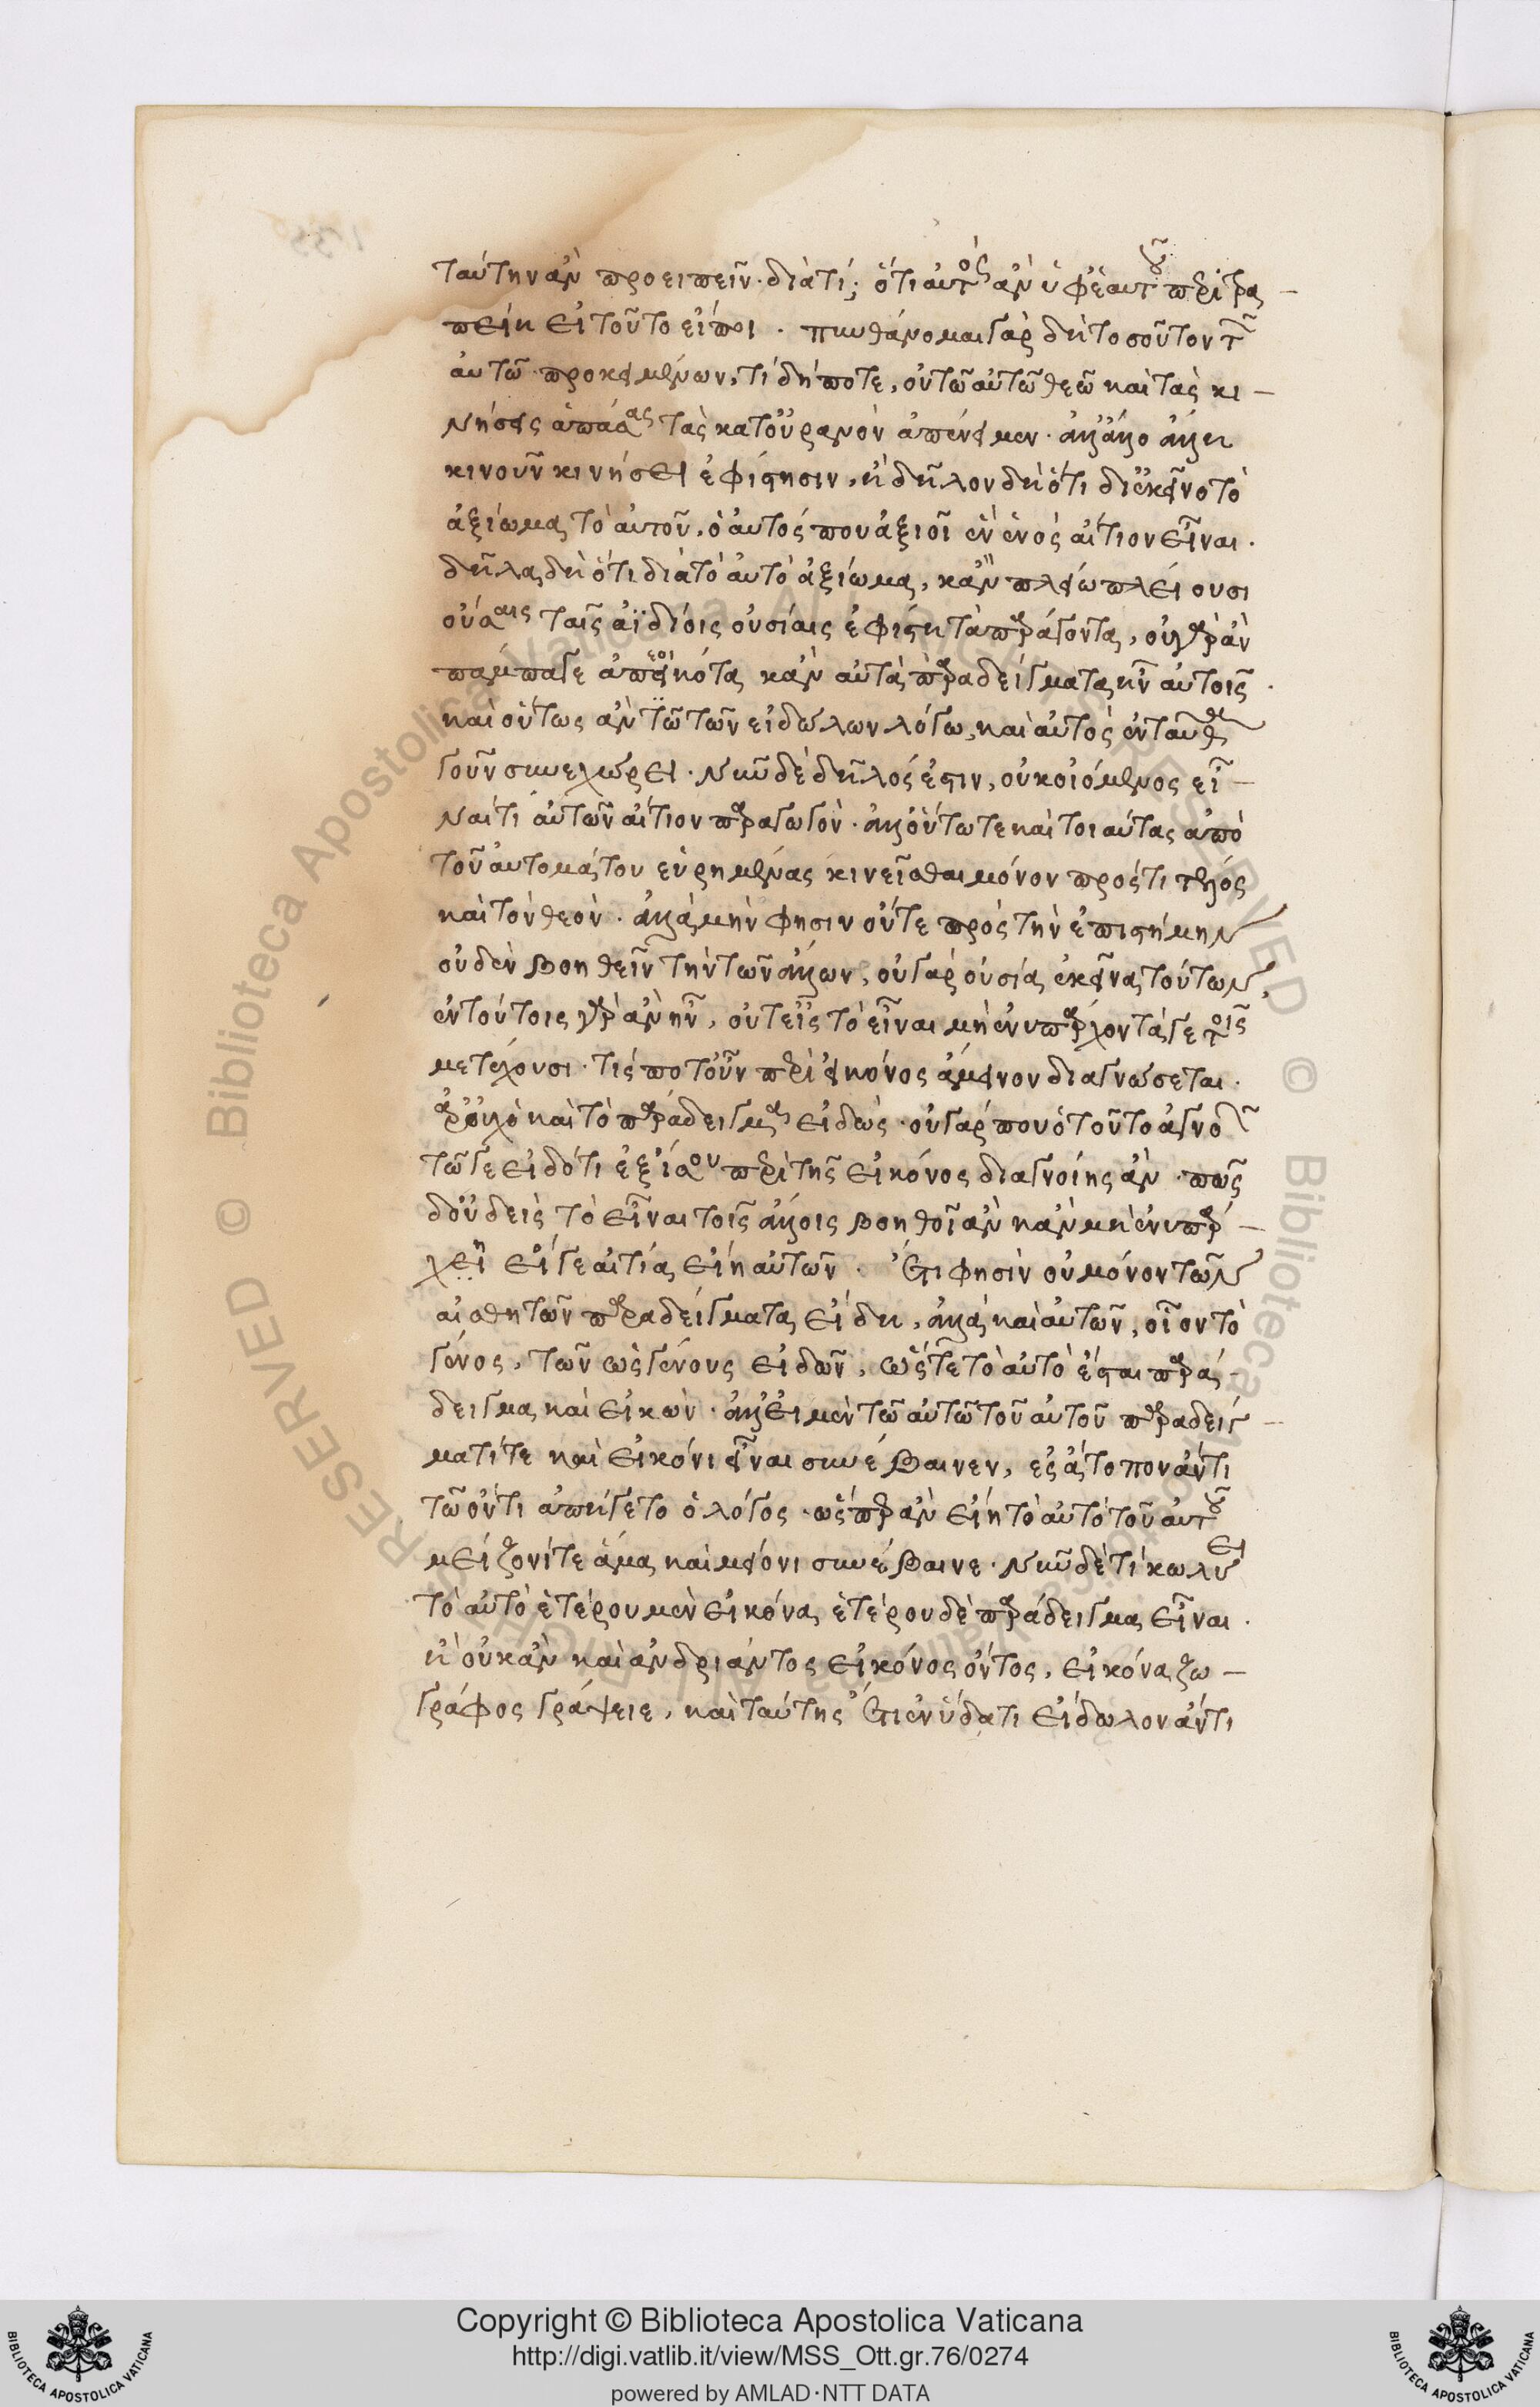 ταύτην ἂν προειπεῖν· διὰ τί; ὅτι αὐτὸς ἂν ὑφ' ἑαυτοῦ περιτρα
πείη εἰ τοῦτο εἴποι. πυνθάνομαι γὰρ δὴ τοσοῦτον τῶν
αὐτῷ προκειμένων, τί δήποτε, οὑτωῒ αὐτῷ θεῷ καὶ τὰς κι
νήσεις ἁπάσας τὰς κατ' οὐρανὸν ἀπένειμεν· ἀλλ' ἄλλο ἄλλῃ
κινοῦν κινήσει ἐφίστησιν, ἢ δῆλον δὴ ὅτι δι' ἐκεῖνο τὸ
ἀξίωμα τὸ αὑτοῦ, ὃ αὐτός που ἀξιοῖ ἓν ἑνὸς αἴτιον εἶναι.
δῆλα δὴ ὅτι διὰ τὸ αὐτὸ ἀξίωμα, κἂν πλείω πλείουσι
οὔσαις ταῖς ἀϊδίοις οὐσίαις ἐφίστη τὰ παράγοντα, οὐχ ἧττον ἂν
πάμπαγε ἀπεοικότα κἂν αὐτὰ παραδείγματα ἦν αὐτοῖς.
καὶ οὕτως ἂν τῷ τῶν εἰδώλων λόγῳ, καὶ αὐτὸς ἐνταῦθα
γοῦν συνεχώρει. νῦν δὲ δῆλός ἐστιν, οὐκ οἰόμενος εἶ
ναί τι αὐτῶν αἴτιον παραγωγόν· ἀλλ' οὕτω τε καὶ τοιαύτας ἀπὸ
τοῦ αὐτομάτου εὑρημένας κινεῖσθαι μόνον πρός τι τέλος
καὶ τὸν θεόν. ἀλλὰ μήν φησιν οὔτε πρὸς τὴν ἐπιστήμην
οὐδὲν βοηθεῖν τὴν τῶν ἄλλων, οὐ γὰρ οὐσία ἐκεῖνα τούτων,
ἐν τούτοις γὰρ ἂν ἦν, οὔτ' εἰς τὸ εἶναι μὴ ἐνυπάρχοντά γε τοῖς
μετέχουσι. τίς ποτ' οὖν περὶ εἰκόνος ἄμεινον διαγνώσεται.
ἆρ' οὐχ ὁ καὶ τὸ παράδειγμα εἰδώς· οὐ γάρ που ὁ τοῦτο ἀγνοῶν
τῷ γε εἰδότι ἐξ ἴσου περὶ τῆς εἰκόνος διαγνοίης ἄν. πῶς
δ' οὐδ' εἰς τὸ εἶναι τοῖς ἄλλοις βοηθοῖ ἂν κἂν μὴ ἐνυπάρ
χῃ εἴγε αἰτία εἴη αὐτῶν. Ἔτι φησὶν οὐ μόνον τῶν
αἰσθητῶν παραδείγματα εἴδη, ἀλλὰ καὶ αὐτῶν, οἷον τὸ
γένος, τῶν ὡς γένους εἰδῶν, ὥστε τὸ αὐτὸ ἔσται παρά
δειγμα καὶ εἰκών. ἀλλ' εἰ μὲν τῷ αὐτῷ τοῦ αὐτοῦ παραδείγ
ματί τε καὶ εἰκόνι εἶναι συνέβαινεν, ἐς ἄτοπον ἄν τι
τῷ ὄντι ἀπήγετο ὁ λόγος· ὥσπερ ἂν εἴη τὸ αὐτὸ τοῦ αὐτοῦ
μείζονί τε ἅμα καὶ μείονι συνέβαινε. νῦν δὲ τί κωλύει
τὸ αὐτὸ ἑτέρου μὲν εἰκόνα ἑτέρου δὲ παράδειγμα εἶναι.
ἢ οὐκ ἂν καὶ ἀνδριάντος εἰκόνος ὄντος, εἰκόνα ζω
γράφος γράψειε, καὶ ταύτης ἔτι ἐν ὕδατι εἴδωλον ἄν τι
Copyright © Biblioteca Apostolica Vaticana
http://digi.vatlib.it/view/MSS_Ott.gr.76/0274
powered by AMLAD·NTT DATA